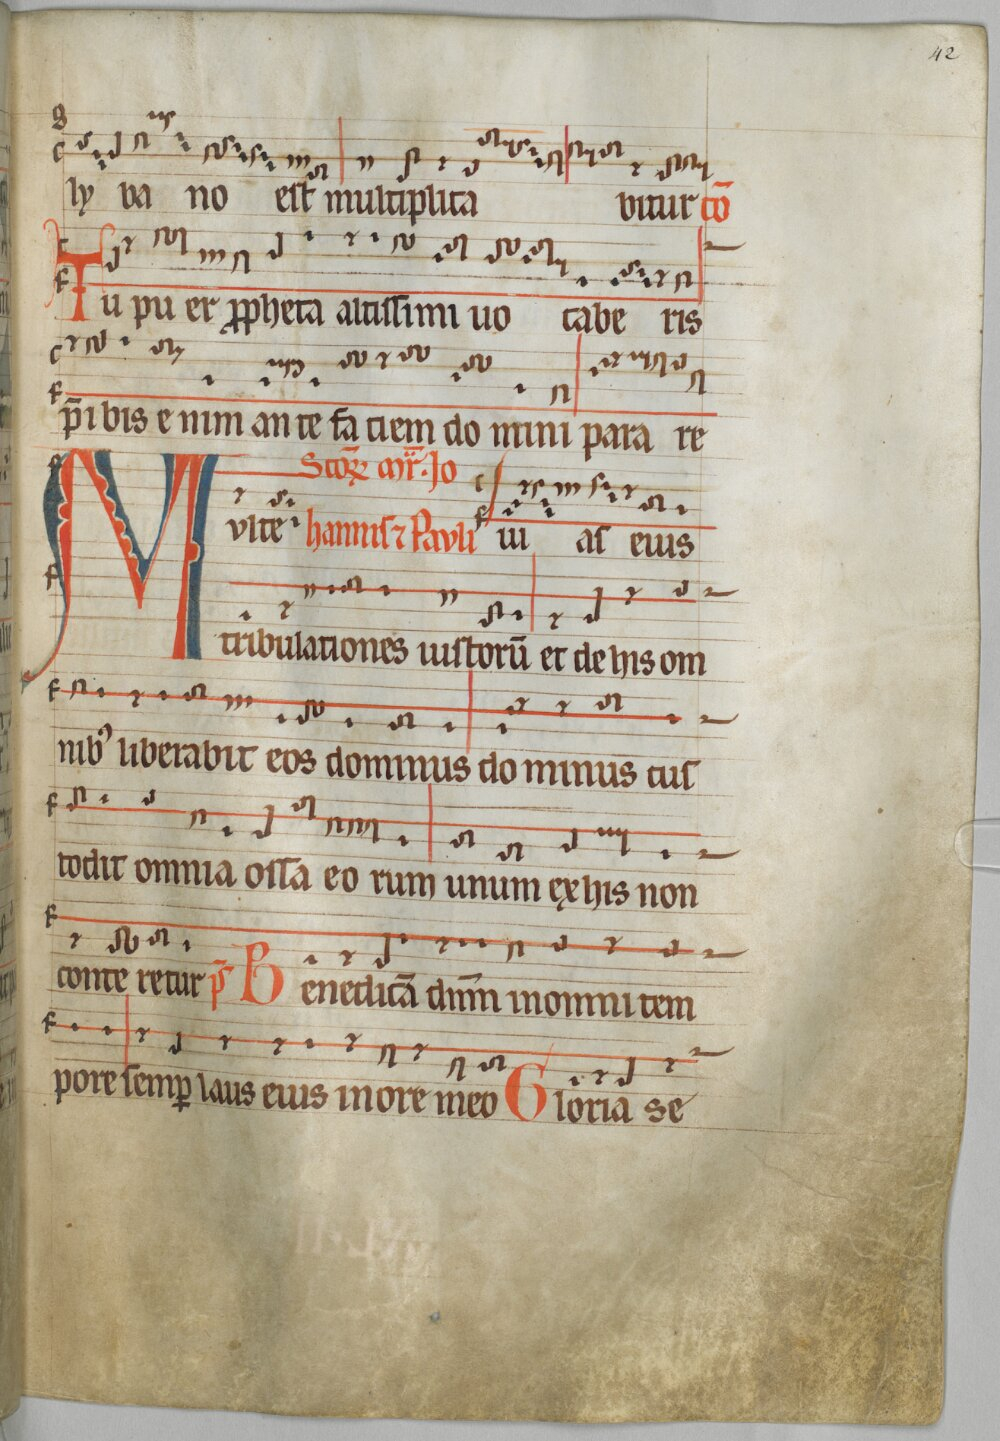 42
ly ba no est multiplica bitur cō
Tu pu er ꝓpheta altissimi uo cabe ris
p̄i bis e nim an te fa ciem do mini para re
Scōꝝ m̄r̄. Jo
M vlte hannis ⁊ Pauli iu as eius
tribulationes iustorū et de his om
nibꝰ liberabit eos dominus do minus cus
todit omnia ossa eo rum unum ex his non
conte retur p̄s Benedicā dn̄m in omni tem
pore semꝑ laus eius in ore meo Gloria se